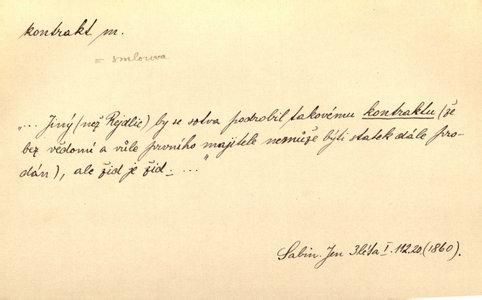 kontrakt m.
= smlouva
„... Jiný (než Rejdlic) by se sotva podrobil takovému kontraktu (že
bez vědomí a vůle prvního majitele nemůže býti statek dále pro-
dán), ale žid je žid. ..."
Sabin. Jen 3 léta I. 112.20 (1860).